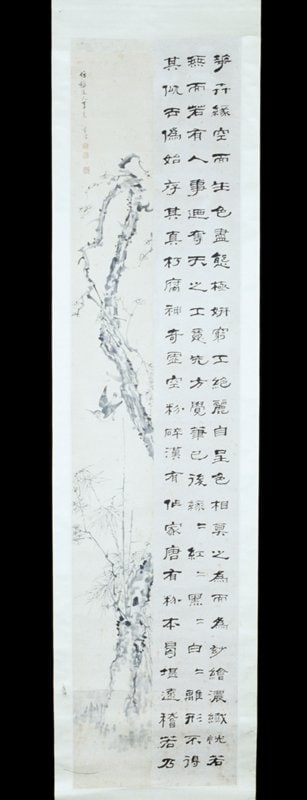 華卉緣空而生色盡態極妍窮工絕麗自呈色相莫之為而為妙繪濃纖恍若
無而若有人事迺奪天之工意先方覺筆已後綠〻紅〻黑〻白〻離形不得
其似去偽始存其真朽腐神奇靈空粉碎漢有作家唐有粉本曷堪遠稽若乃